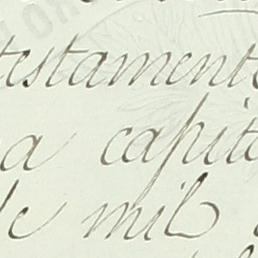 testamento
a capita
de mil